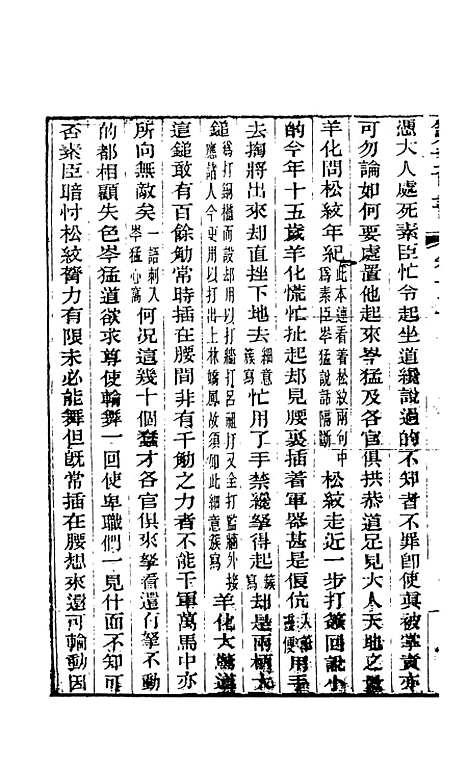 憑大人處死素臣忙令起坐道纔說過的不知者不罪卽使眞被拿責亦
可勿論如何要處置他起來岑猛及各官俱拱恭道足見大人天地之
羊化問松紋年紀此本連看著松紋兩句中爲素臣岑猛說話隔斷松紋走近一步打簽回說小
的今年十五歲羊化慌忙扯起却見腰裏插着軍器甚是偃伉用手
去掏將出來却直挫下地去細意忙用了手禁纔拏得起簇寫却是兩柄大
鎚爲打銅檻而設却用以打繼打呂祖打又金打監牆外接應諸人今更用以打出上林嬌鳳故須如此細意簇寫羊化大驚道
這鎚敢有百餘觔常時插在腰間非有千觔之力者不能千軍萬馬中亦
所向無敵矣一語刺入岑猛心窩何況這幾十個蠢才各官俱來拏看還有拏不動
的都相顧失色岑猛道欲求尊使輪舞一回使卑職們一見什面不知可
否素臣暗忖松紋膂力有限未必能舞但旣常插在腰想來還可輪動因